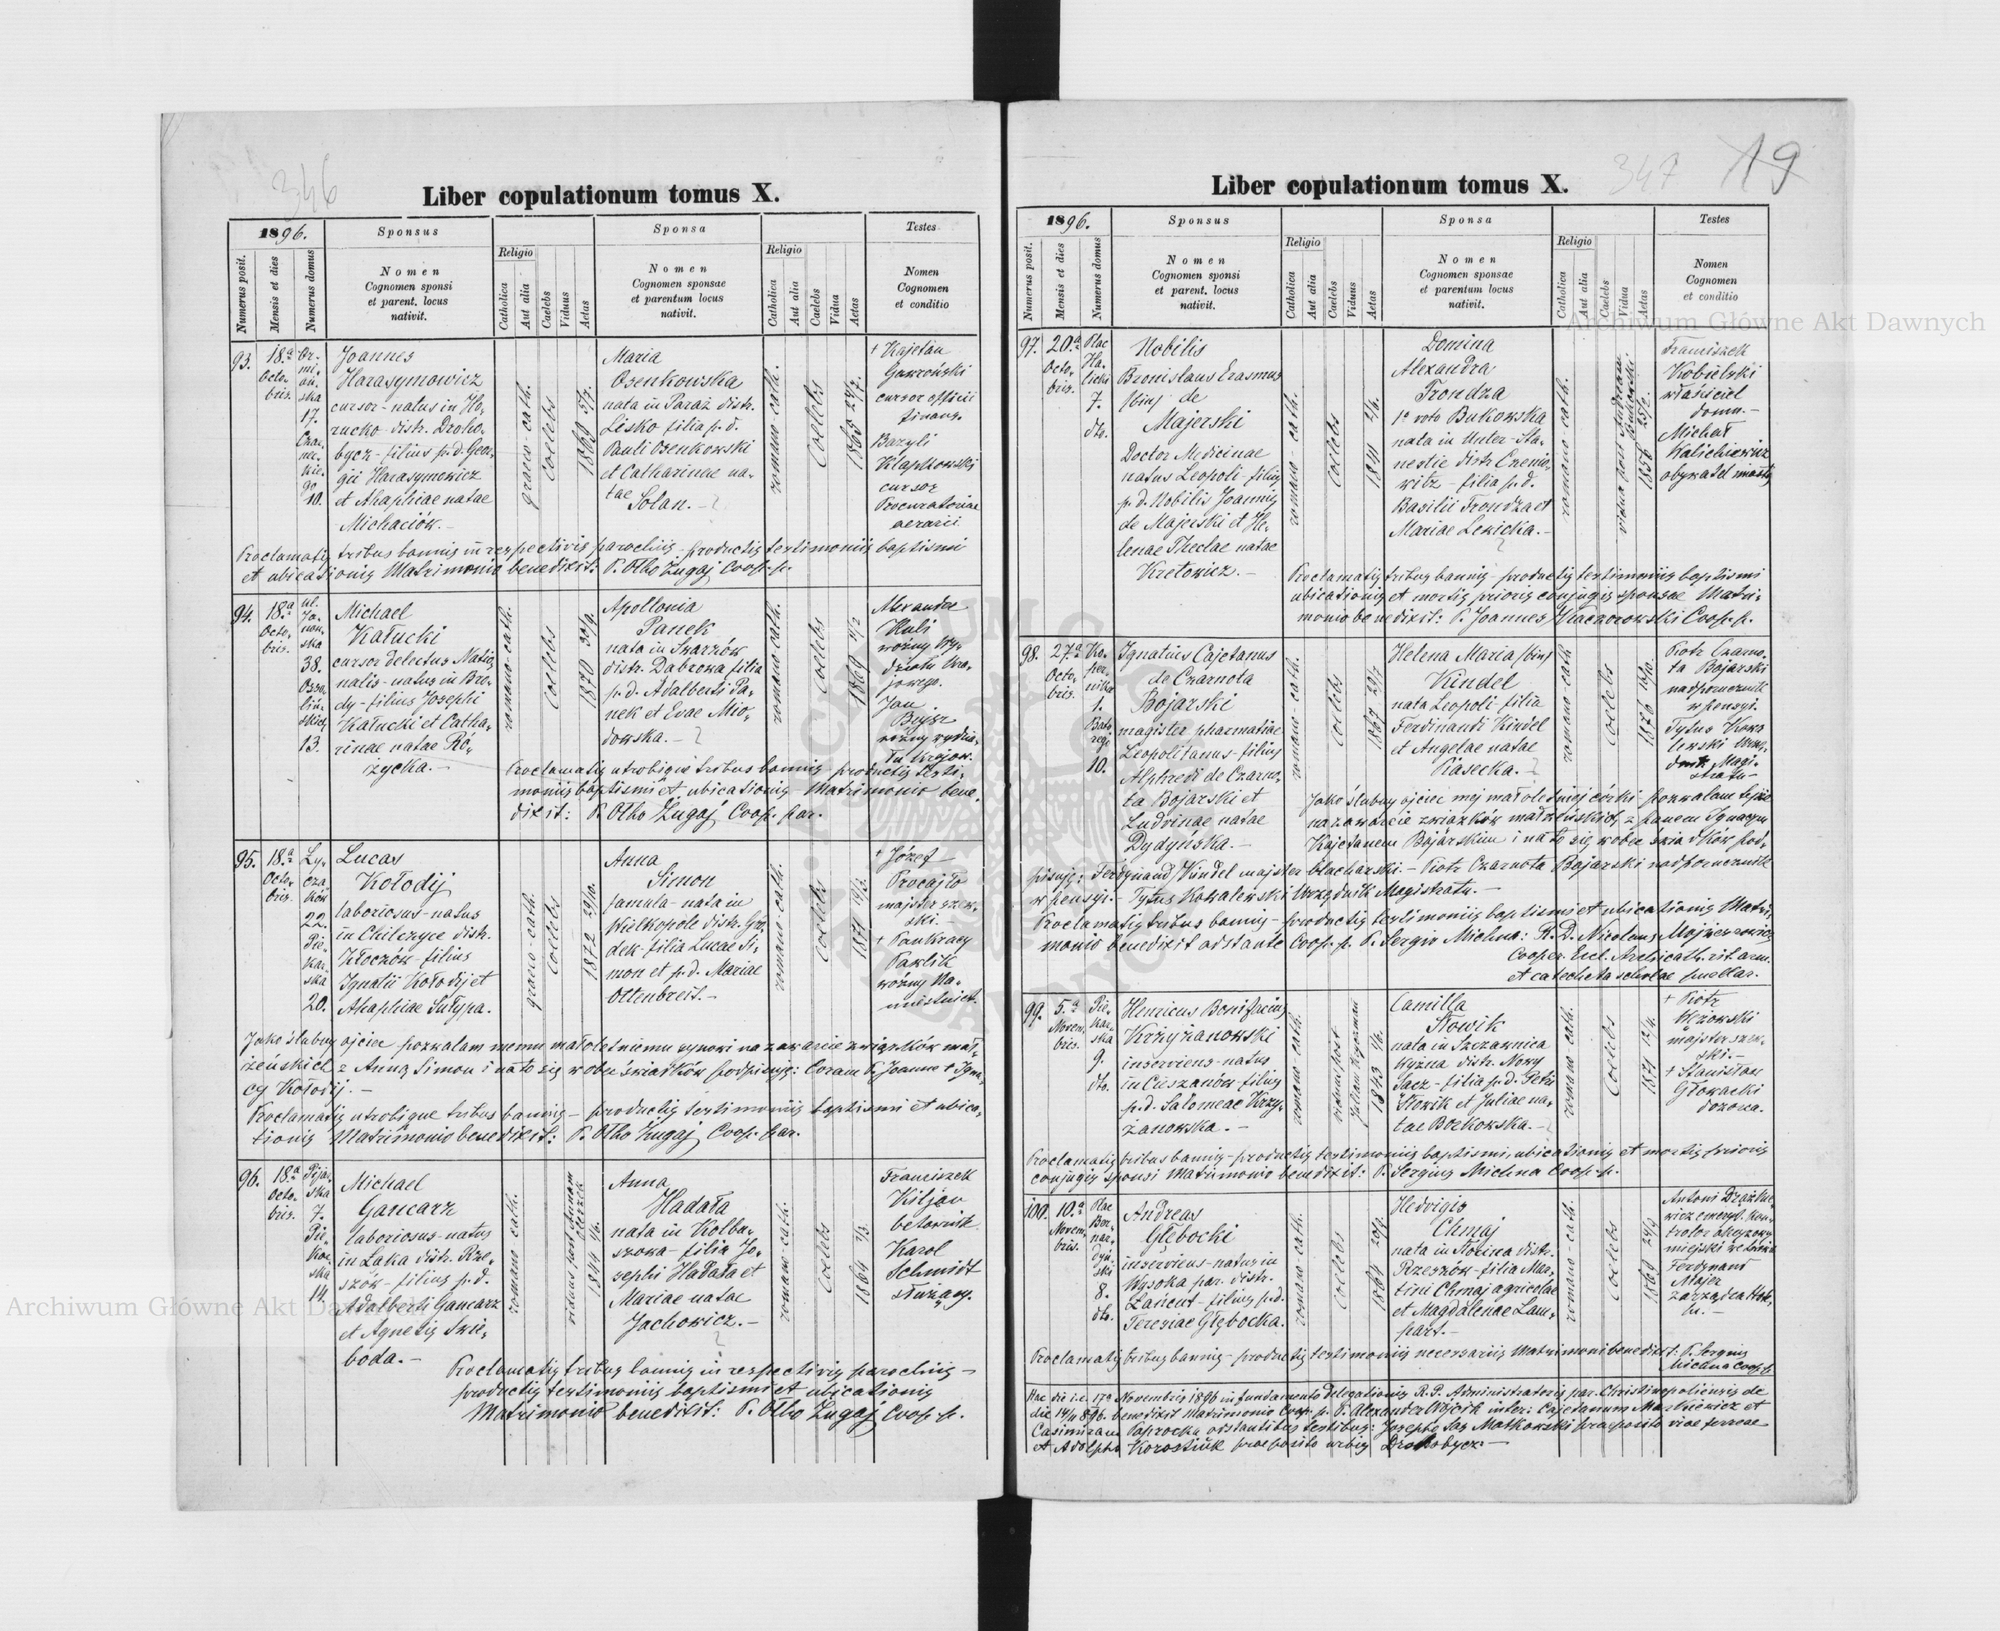 346
Liber copulationum tomus X.
1896.
Sponsus
Sponsa
Testes
Numerus posit.
Mensis et dies
Numerus domus
Nomen
Cognomen sponsi
et parent. locus
nativit.
Religio
Catholica
Aut alia
Caelebs
Viduus
Aetas
Nomen
Cognomen sponsae
et parentum locus
nativit.
Religio
Catholica
Aut alia
Caelebs
Vidua
Aetas
Nomen
Cognomen
et conditio
93.
18.a
Octo-
bris.
Or-
mi-
ań-
ska
17.
Czar-
nec-
kie-
go
10.
Joannes
Harasymowicz
cursor - natus in Ho-
rucko distr. Droho-
bycz - filius p.d. Geor-
gii Harasymowicz
et Ahaphiae natae
Michaciów.-
graeco-cath.
Coelebs
1860 5/7.
Maria
Osenkowska
nata in Paraż distr.
Lisko filia p.d.
Pauli Osenkowski
et Catharinae na-
tae
Solan. -
romano-cath.
Coelebs
† Kajetan
Gawroński
cursor officii
finanz.
Bazyli
Kłapkowski
cursor
Procuratoriae
aerarii
Proclamatis tribus bannis in respectivis parochiis - productis testimoniis baptismi
et ubicationis Matrimonio benedixit: P. Otho Zugaj Coop. p.
94.
18.a
Octo-
bris.
ul.
Ja-
now-
ska
38.
Osso-
liń-
skich
13.
Michael
Kałucki
cursor delectus Natio-
nalis - natus in Bro-
dy - filius Josephi
Kałucki et Catha-
rinae natae Ró-
życka. -
romano-cath.
Coelebs
1870 30/9.
Apollonia
Panek
nata in Swarzów
distr. Dabrowa filia
p.d. Adalberti Pa-
nek et Evae Mio-
dowska. -
romano-cath.
Coelebs
Alexander
Kuli
woźny Wy-
działu kra-
jowego.
Jan
woźny wydzia-
łu krajow.
Proclamatis utrobique tribus bannis productis testi-
moniis baptismi et ubicationis Matrimonio bene-
dixit: P. Otho Zugaj Coop. par.
95.
18.a
Octo-
bris.
Ły-
cza-
ków
22.
Pie-
kar-
ska
20.
Lucas
Kołodij
laboriosus - natus
in Chilczyce distr.
Złoczów - filius
Ignatii Kołodij et
Ahaphiae Sułypa.
graeco-cath.
Coelebs
1872 29/10.
Anna
Simon
famula - nata in
Wielkopole distr. Gró-
dek filia Lucae Si-
mon et p.d. Mariae
Ottenbreit. -
romano-cath.
Coelebs
† Józef
Procajło
majster szew-
ski.
† Pankracy
Pawlik
woźny Na-
miestnict.
Jako ślubny ojciec pozwalam memu małoletniemu synowi na zawarcie związków mał-
żeńskich z Anną Simon i na to się wobec świadków podpisuję: Coram P. Joanne † Igna-
cy Kołodij. -
Proclamatis utrobique tribus bannis - productis testimoniis baptismi et ubica-
tionis Matrimonio benedixit: P. Otho Zugaj Coop. par.
96.
18.a
Octo-
bris.
Pijar-
ska
7.
Pie-
kar-
ska
14.
Michael
Gancarz
laboriosus - natus
in Łąka distr. Rze-
szów - filius p.d.
Adalberti Gancarz
et Agnetis Świe-
boda. -
romano cath.
viduus post Annam
1844
Anna
Hadała
nata in Kolbu-
szowa - filia Jo-
sephi Hadała et
Mariae natae
Jachowicz. -
romano-cath.
Coelebs
1864
Franciszek
Kiljan
betownik
Karol
Schmidt
służący.
Proclamatis tribus bannis in respectivis parochiis -
productis testimoniis baptismi et ubicationis
Matrimonio benedixit: P. Otho Zugaj Coop. p.
347
19
Liber copulationum tomus X.
1896.
Sponsus
Sponsa
Testes
Numerus posit.
Mensis et dies
Numerus domus
Nomen
Cognomen sponsi
et parent. locus
nativit.
Religio
Catholica
Aut alia
Caelebs
Viduus
Aetas
Nomen
Cognomen sponsae
et parentum locus
nativit.
Religio
Catholica
Aut alia
Caelebs
Vidua
Aetas
Nomen
Cognomen
et conditio
97.
20.a
Octo-
bris.
Plac
Ha-
licki
7.
dto.
Nobilis
Bronislaus Erasmus
(bin) de
Majerski
Doctor Medicinae
natus Leopoli - filius
p.d. Nobilis Joannis
de Majerski et He-
lenae Theclae natae
Kretowicz. -
romano-cath.
Coelebs
1841 2/6.
Domina
Alexandra
Frondza
1o voto Bukowska
nata in Unter-Sta-
nestie distr. Czernio-
witz - filia p.d.
Basilii Frondza et
Mariae Lewicka. -
romano-cath.
1856 25/2.
Franciszek
Kobielski
właściciel
domu. -
Michał
Walichiewicz
obywatel miasta
Proclamatis tribus bannis - productis testimoniis baptismi
ubicationis et mortis prioris conjugis sponsae Matri-
monio benedixit: P. Joannes Coop. p.
98.
27.a
Octo-
bris.
Ko-
per-
nika
1.
Bato-
rego
10.
Ignatius Cajetanus
de Czarnota
Bojarski
magister pharmatiae
Leopolitanus - filius
Alphredi de Czarno-
ta Bojarski et
Ludvinae natae
Dydyńska. -
romano-cath.
Coelebs
1867 29/7
Helena Maria (bin)
Kindel
nata Leopoli filia
Ferdinandi Kindel
et Angelae natae
Piasecka. -
romano-cath.
Coelebs
1876 18/10.
Piotr Czarno-
ta Bojarski
nadporucznik
w pensyi.
Tytus Kowa-
lewski Urzę-
dnik Magi-
stratu -
Jako ślubny ojciec mej małoletniej córki pozwalam tejże
na zawarcie związków małżeńskich z panem Ignacym
Kajetanem Bojarskim i na to się wobec świadków pod-
pisuję: Ferdynand Kindel majster blacharski. - Piotr Czarnota Bojarski nadporucznik
w pensyi. - Tytus Kowalewski Urzędnik Magistratu. -
Proclamatis tribus bannis - productis testimoniis baptismi et ubicationis Matri-
monio benedixit adstante Coop. p. P. Sergio Michna: R. D. Nicolaus Mojzesowicz
Cooper. Eccl. Archicath. rit. arm.
et catecheta scholae puellar.
99.
5.a
Novem-
bris.
Pie-
kar-
ska
9.
dto.
Henricus Bonifacius
Krzyżanowski
inserviens - natus
in Cieszanów filius
p.d. Salomeae Krzy-
żanowska. -
romano-cath.
viduus post
1843
Camilla
Słowik
nata in Szczawnica
wyżna distr. Nowy
Sącz - filia p.d. Petri
Słowik et Juliae na-
tae Bochowska. -
romano cath.
Coelebs
1871
† Piotr
Wężowski
majster szew-
ski. -
† Stanisław
Głowacki
dozorca.
Proclamatis tribus bannis - productis testimoniis baptismi, ubicationis et mortis prioris
conjugis sponsi Matrimonio benedixit: P. Sergius Michna Coop. p.
100.
10.a
Novem-
bris.
Plac
Ber-
nar-
dyń-
ski
8.
dto.
Andreas
Głębocki
inserviens - natus in
Wysoka par. distr.
Łańcut - filius p.d.
Teresiae Głębocka.
romano-cath.
Coelebs
1864
Hedvigis
Chmaj
nata in Słocina distr.
Rzeszów - filia Mar-
tini Chmaj agricolae
et Magdalenae Lam-
part. -
romano-cath.
Coelebs
1869
Antoni
Ferdynand
Majer
zarządca
Proclamatis tribus bannis - productis testimoniis necessariis Matrimoni benedixit: P. Sergius
Michna Coop. p.
Hac die i.e. 17a Novembris 1896 in fundamento Delegationis R. P. Administratoris par. Christinopoliensis de
die 14/11 896. benedixit Matrimonio Coop. p. P. Alexander Wójcik inter: Cajetanum Markiewicz et
Casimiram Paprocka adstantibus testibus: Josepho Sas Matkowski praeposito viae ferreae
et Adolpho Korostiuk praeposito urbis Drohobycz. -
Archiwum Główne Akt Dawnych
Archiwum Główne Akt Dawnych